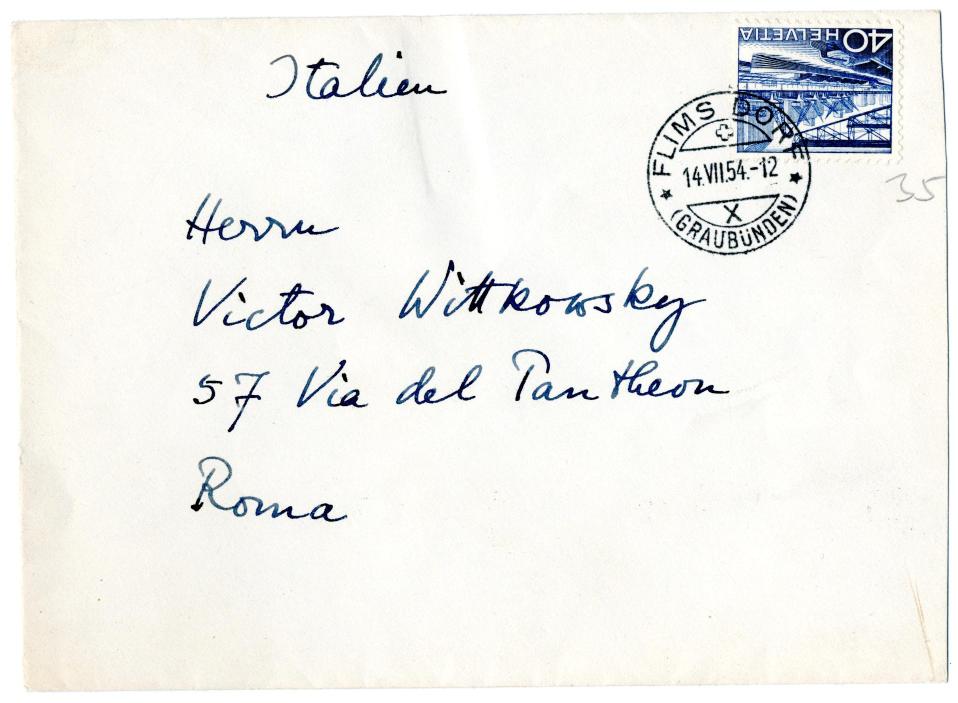 Italien
40 HELVETIA
FLIMS DORF
14.VII.54.-12
X
(GRAUBÜNDEN)
35
Herrn
Victor Wittkowsky
57 Via del Pantheon
Roma